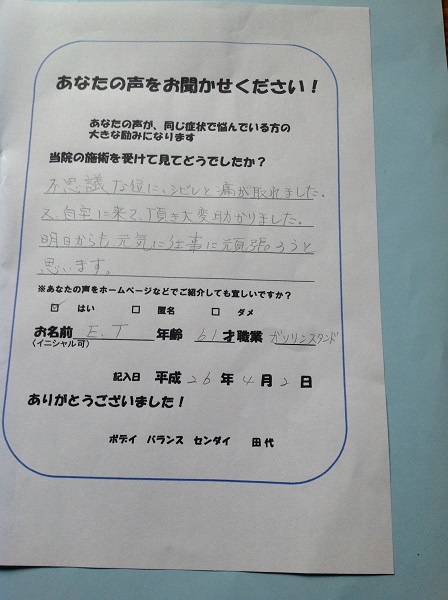 あなたの声をお聞かせください！
あなたの声が、同じ症状で悩んでいる方の
大きな励みになります
当院の施術を受けて見てどうでしたか？
不思議な位に、シビレと痛が取れました。
又、自宅に来て頂き大変助かりました。
明日からも元気に仕事に頑張ろうと
思います。
※あなたの声をホームページなどでご紹介しても宜しいですか？
☑ はい □ 匿名 □ ダメ
お名前 E.T 年齢 61才 職業 ガソリンスタンド
（イニシャル可）
記入日 平成26年4月2日
ありがとうございました！
ボデイ バランス センダイ 田代